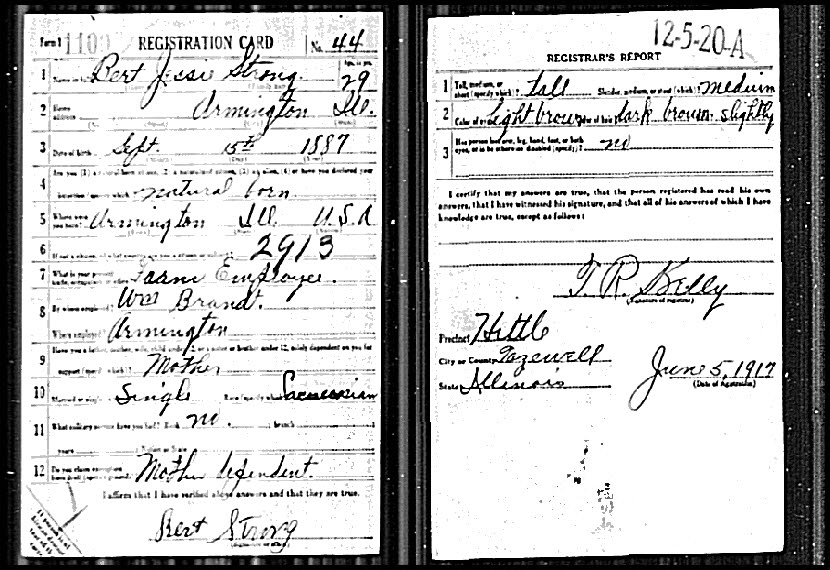 Form 1 1100 REGISTRATION CARD No. 44
1 Bert Jessie Strong. 29
2 Home address Armington Ill.
3 Date of birth Sept. 15th 1887
4 natural born
5 Where were you born? Armington Ill. U.S.A
6 2913
7 What is your present Farm Employee.
8 By whom employed? Wm Brandt.
Where employed? Armington
9 Have you a father, mother, wife, child under 12, or a sister or brother under 12, solely dependent on you for
support (specify which)? Mother
10 Married or single Single Race (specify which)? Caucassian
11 What military service have you had? Rank no. ; branch
years ; Nation or State
12 Do you claim exemption Mother dependent.
I affirm that I have verified above answers and that they are true.
Bert Strong
12-5-20-A
REGISTRAR'S REPORT
1 Tall, medium, or short (specify which)? tall Slender, medium, or stout (which)? medium
2 Color of eyes light brown Color of hair dark brown slightly
3 Has person lost arm, leg, hand, foot, or both eyes, or is he otherwise disabled (specify)? no
I certify that my answers are true, that the person registered has read his own
answers, that I have witnessed his signature, and that all of his answers of which I have
knowledge are true, except as follows:
T. R. Kelly
(Signature of registrar)
Precinct Hittle
City or County Tazewell
State Illinois
June 5, 1917
(Date of registration)